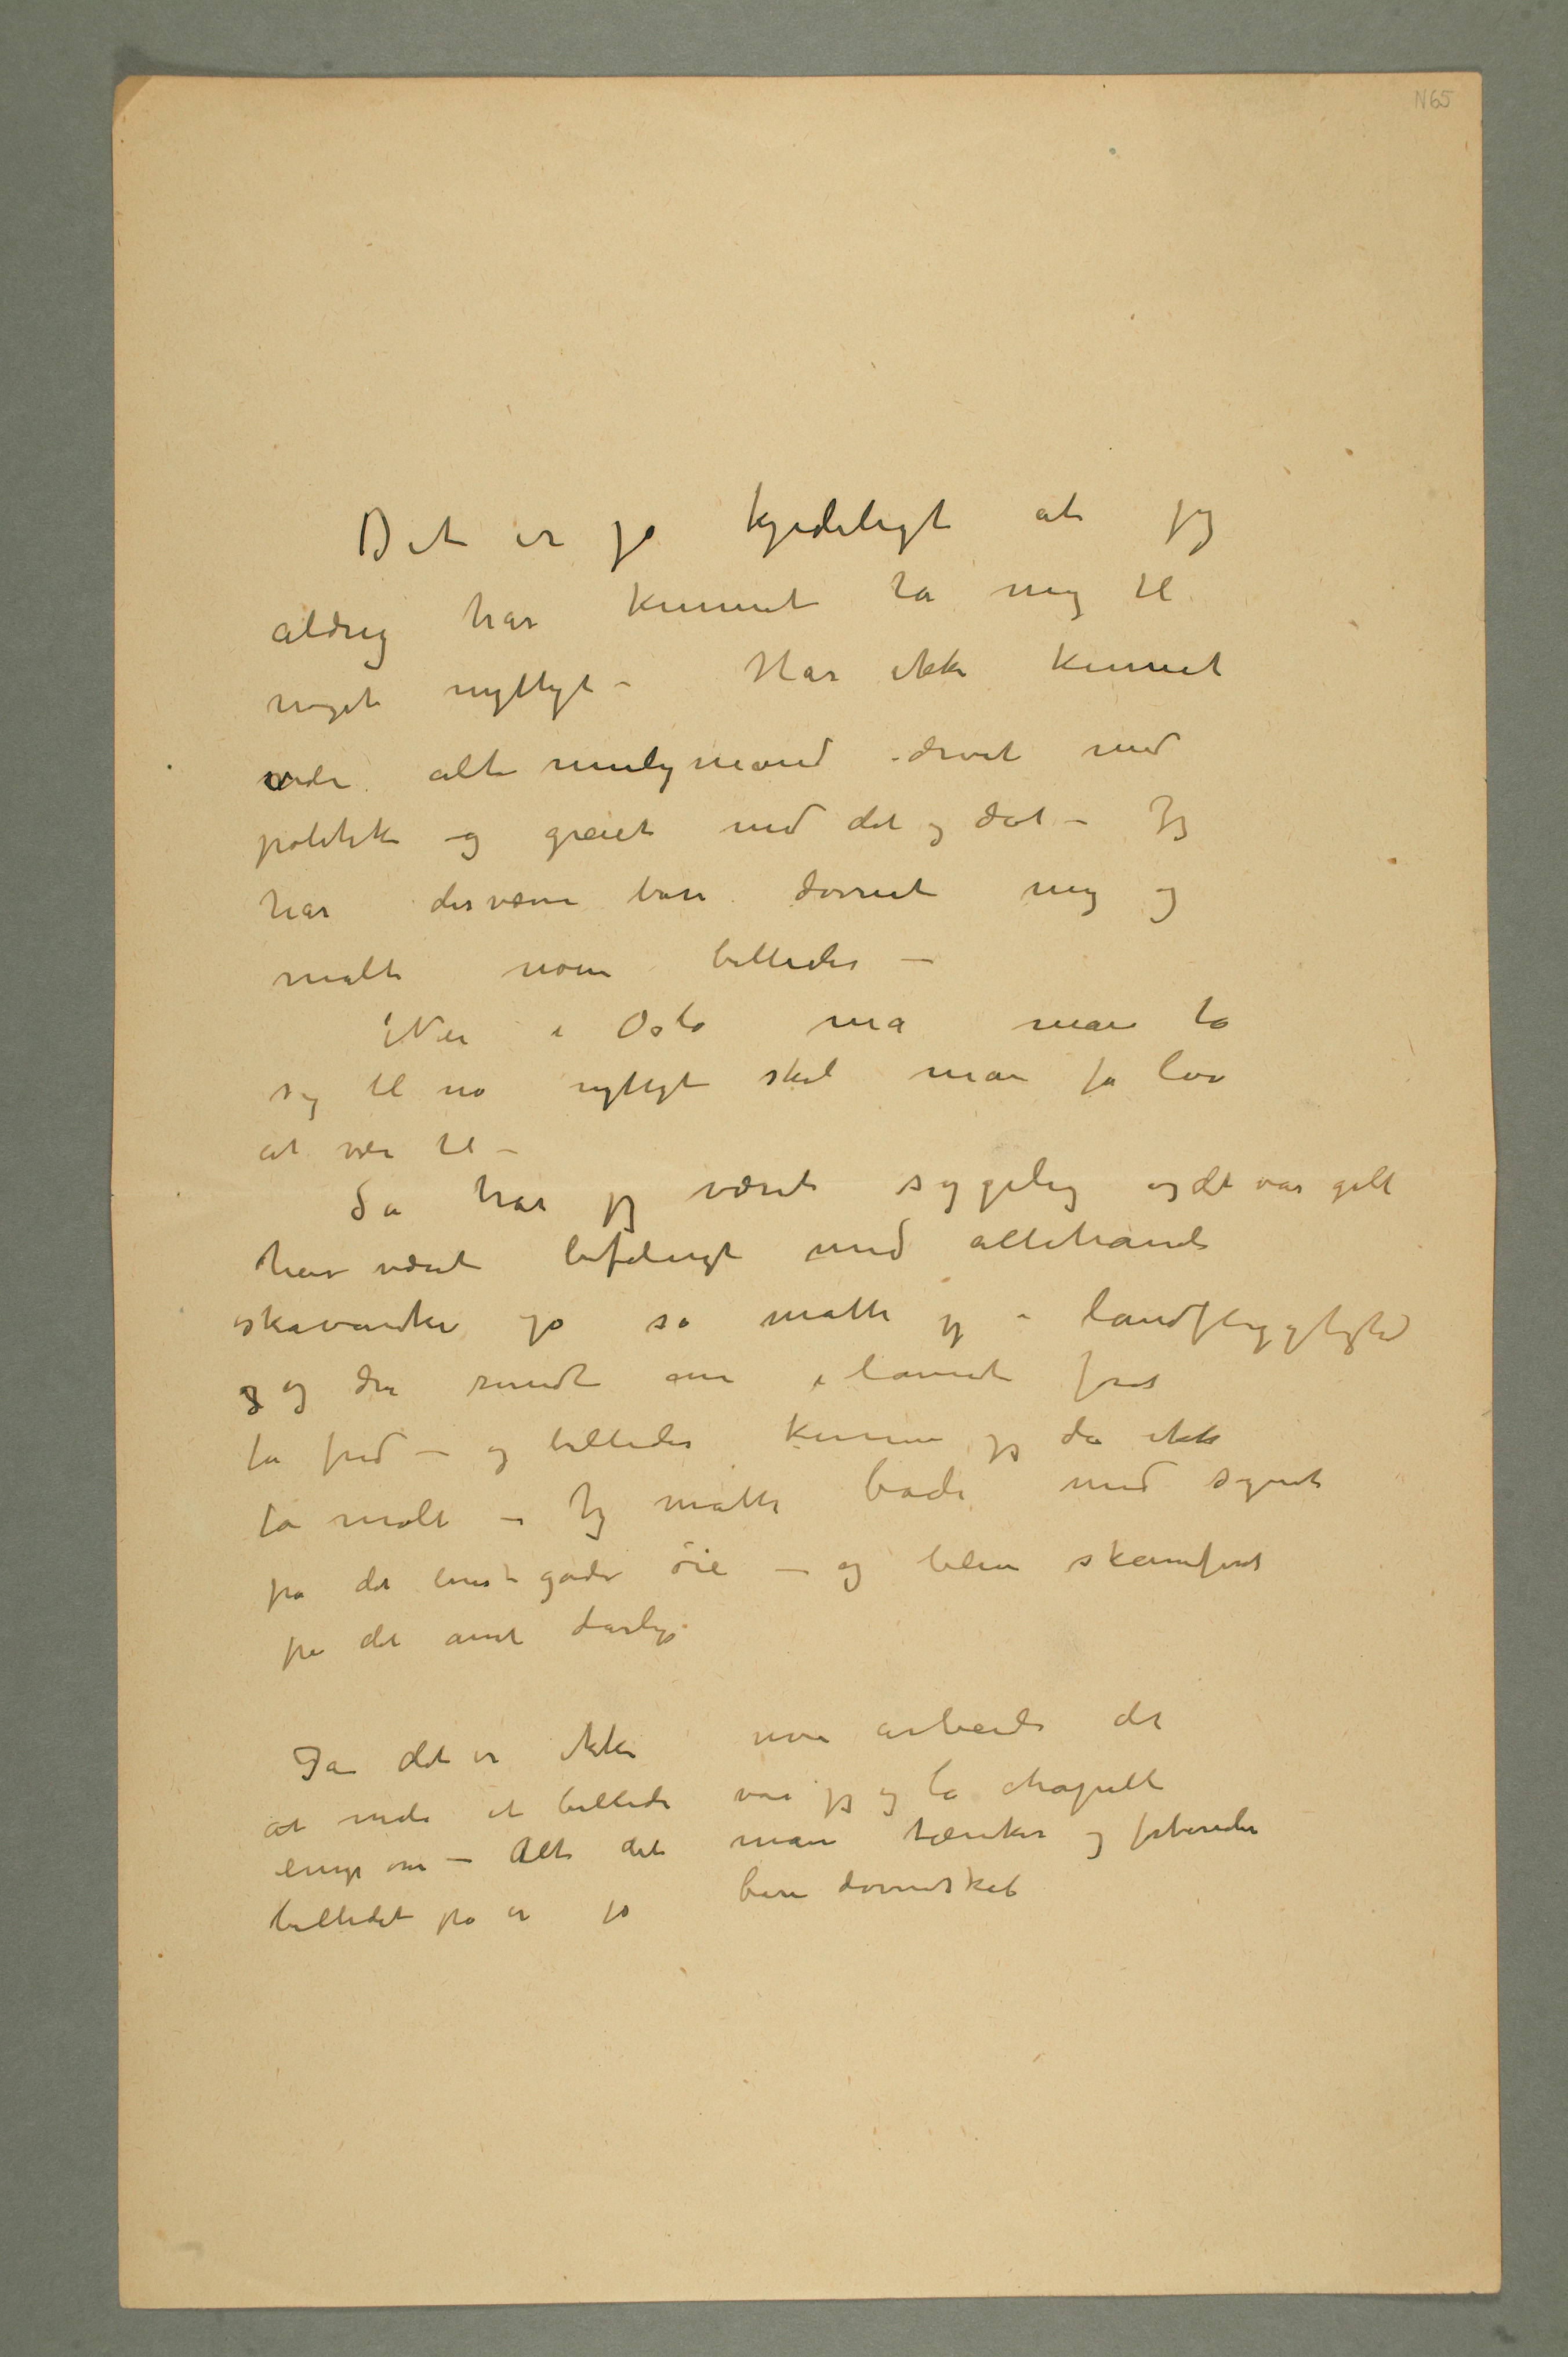 N 65
Det er jo kjedeligt at jeg
aldrig har kunnet ta mig til
noget nyttigt – Har ikke kunnet
være altmuligmand drevet med
politik og greiet med det og dat – Jeg
har desværre bare dovnet mig og
malt noen billeder –
Nei i Oslo må man ta
sig til no nyttigt skal man få lov
at være til –
Så har jeg været sygelig og det var galt
har været befængt med allehånde
skavanker jo så måtte jeg i landflygtighed
og dra rundt om i landet for at
få fred – og billeder kunne jeg da ikke
få malt – Jeg måtte bøde med synet
på det eneste gode øie – og blev skamfert
på det annet dårlige
Ja det er ikke noe arbeide det
at male et billede var jeg og la chapelle
enige om – Alt det man tænker og forbereder
billedet på er jo bare dovenskab